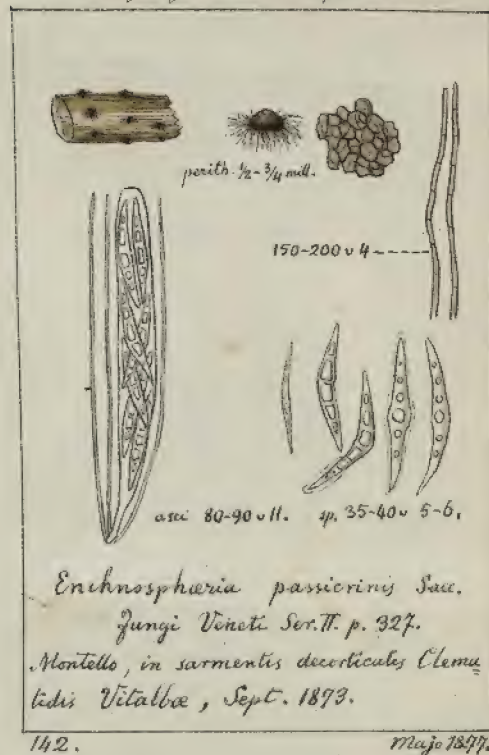 perith. 1/2-3/4 mill.
150-200 v 4
asci 80-90 v 11. sp. 35-40 v 5-6.
Enchnosphæria passicrinis Sacc.
Fungi Veneti Ser. II. p. 327.
Montello, in sarmentis decorticatis Clema=
tidis Vitalbæ, Sept. 1873.
142. Majo 1877